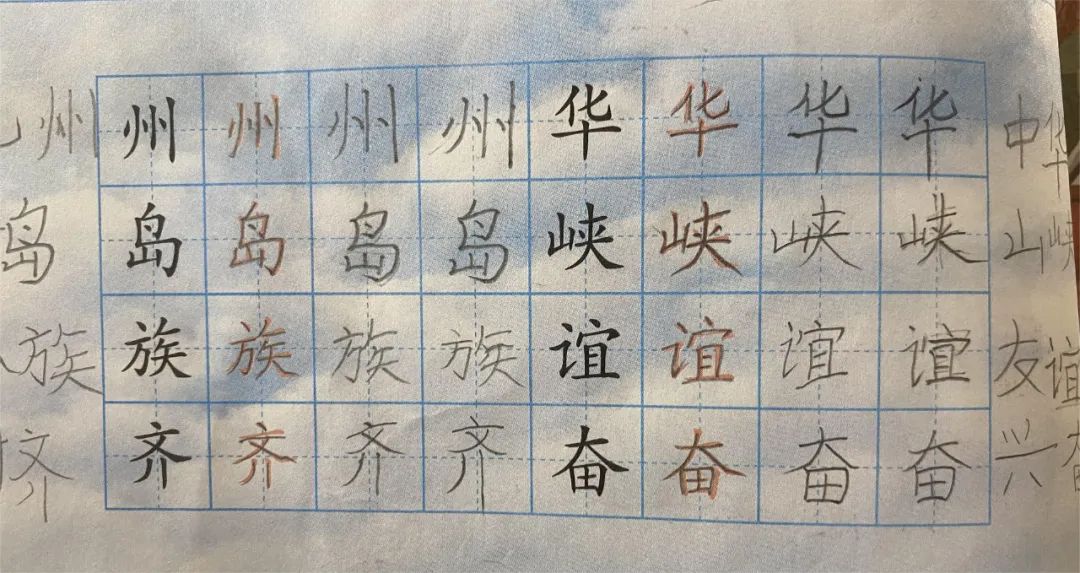 州 州 州 州 州 华 华 华 华 中华
岛 岛 岛 岛 岛 峡 峡 峡 峡 山峡
族 族 族 族 族 谊 谊 谊 谊 友谊
齐 齐 齐 齐 齐 奋 奋 奋 奋 兴奋